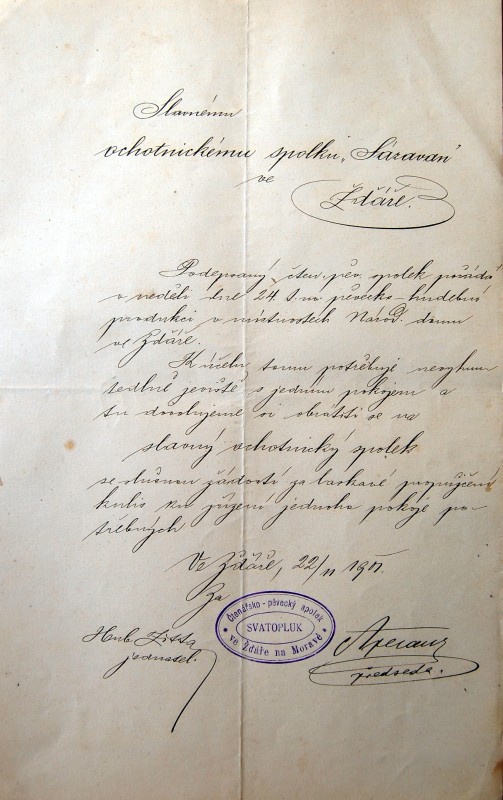 Slavnému
ochotnickému spolku „Sázavan"
ve
Ždáře.
Podepsaný čten. pěv. spolek pořádá
v neděli dne 24. t. m. pěvecko-hudební
produkci v místnostech Národ. domu
ve Ždáře.
K účelu tomu potřebuje nevyhnu-
tedlně jeviště s jedním pokojem a
tu dovolujeme si obrátiti se na
slavný ochotnický spolek
se slušnou žádostí za laskavé propůjčení
kulis ku zřízení jednoho pokoje po-
třebných
Ve Ždáře, 22/11
Za
Čtenářsko-pěvecký spolek
SVATOPLUK
ve Ždáře na Moravě
Hub.
jednatel.
předseda.